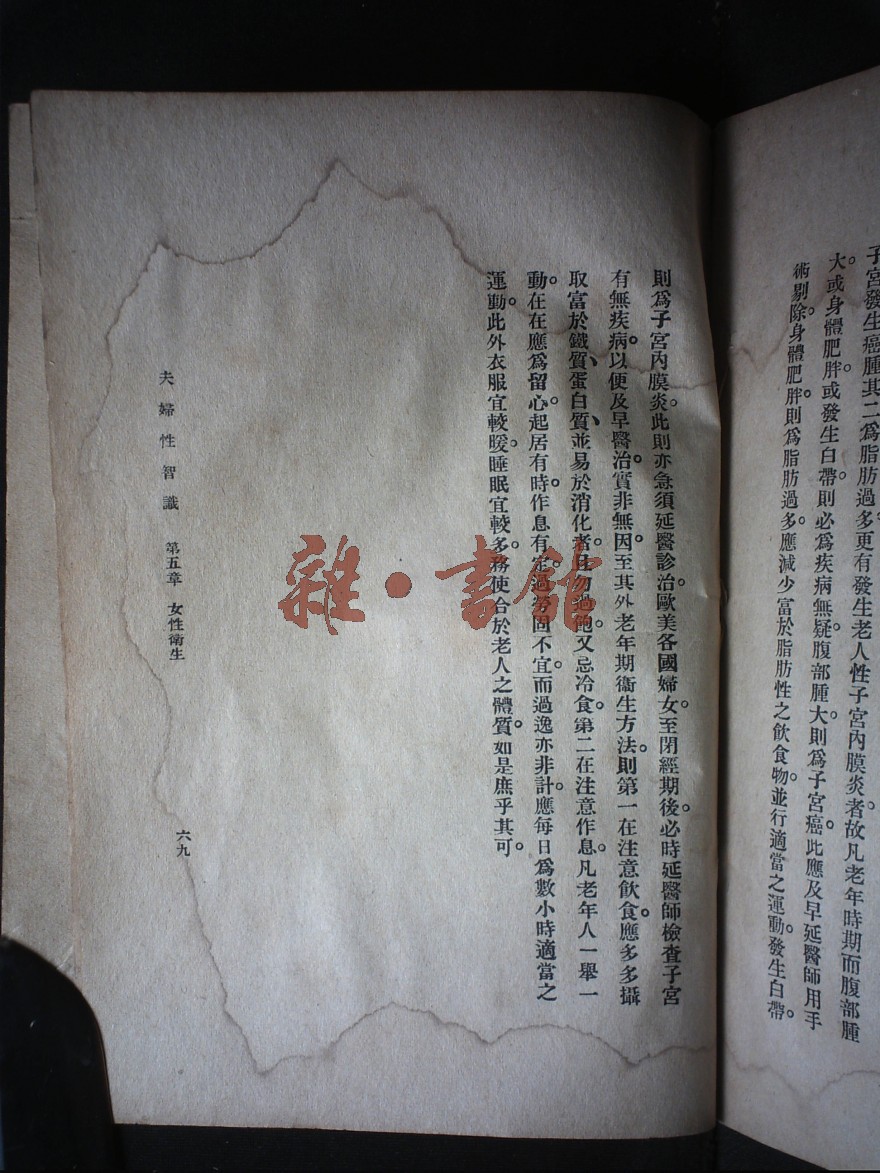 子宮發生癌腫其二為脂肪過多更有發生老人性子宮內膜炎者故凡老年時期而腹部腫
大。或身體肥胖。或發生白帶。則必為疾病無疑。腹部腫大。則為子宮癌。此應及早延醫師用手
術剔除。身體肥胖。則為脂肪過多。應減少富於脂肪性之飲食物。並行適當之運動。發生白帶。
則為子宮內膜炎。此則亦急須延醫診治。歐美各國婦女。至閉經期後。必時延醫師檢查子宮
有無疾病。以便及早醫治。實非無因。至其外老年期衞生方法。則第一在注意飲食。應多多攝
取富於鐵質、蛋白質、並易於消化者。且勿過飽。又忌冷食。第二在注意作息。凡老年人一舉一
動。在在應為留心。起居有時。作息有定。過勞固不宜。而過逸亦非計。應每日為數小時適當之
運動。此外衣服宜較暖。睡眠宜較多。務使合於老人之體質。如是庶乎其可。
夫婦性智識 第五章 女性衛生
六九
雜·書館